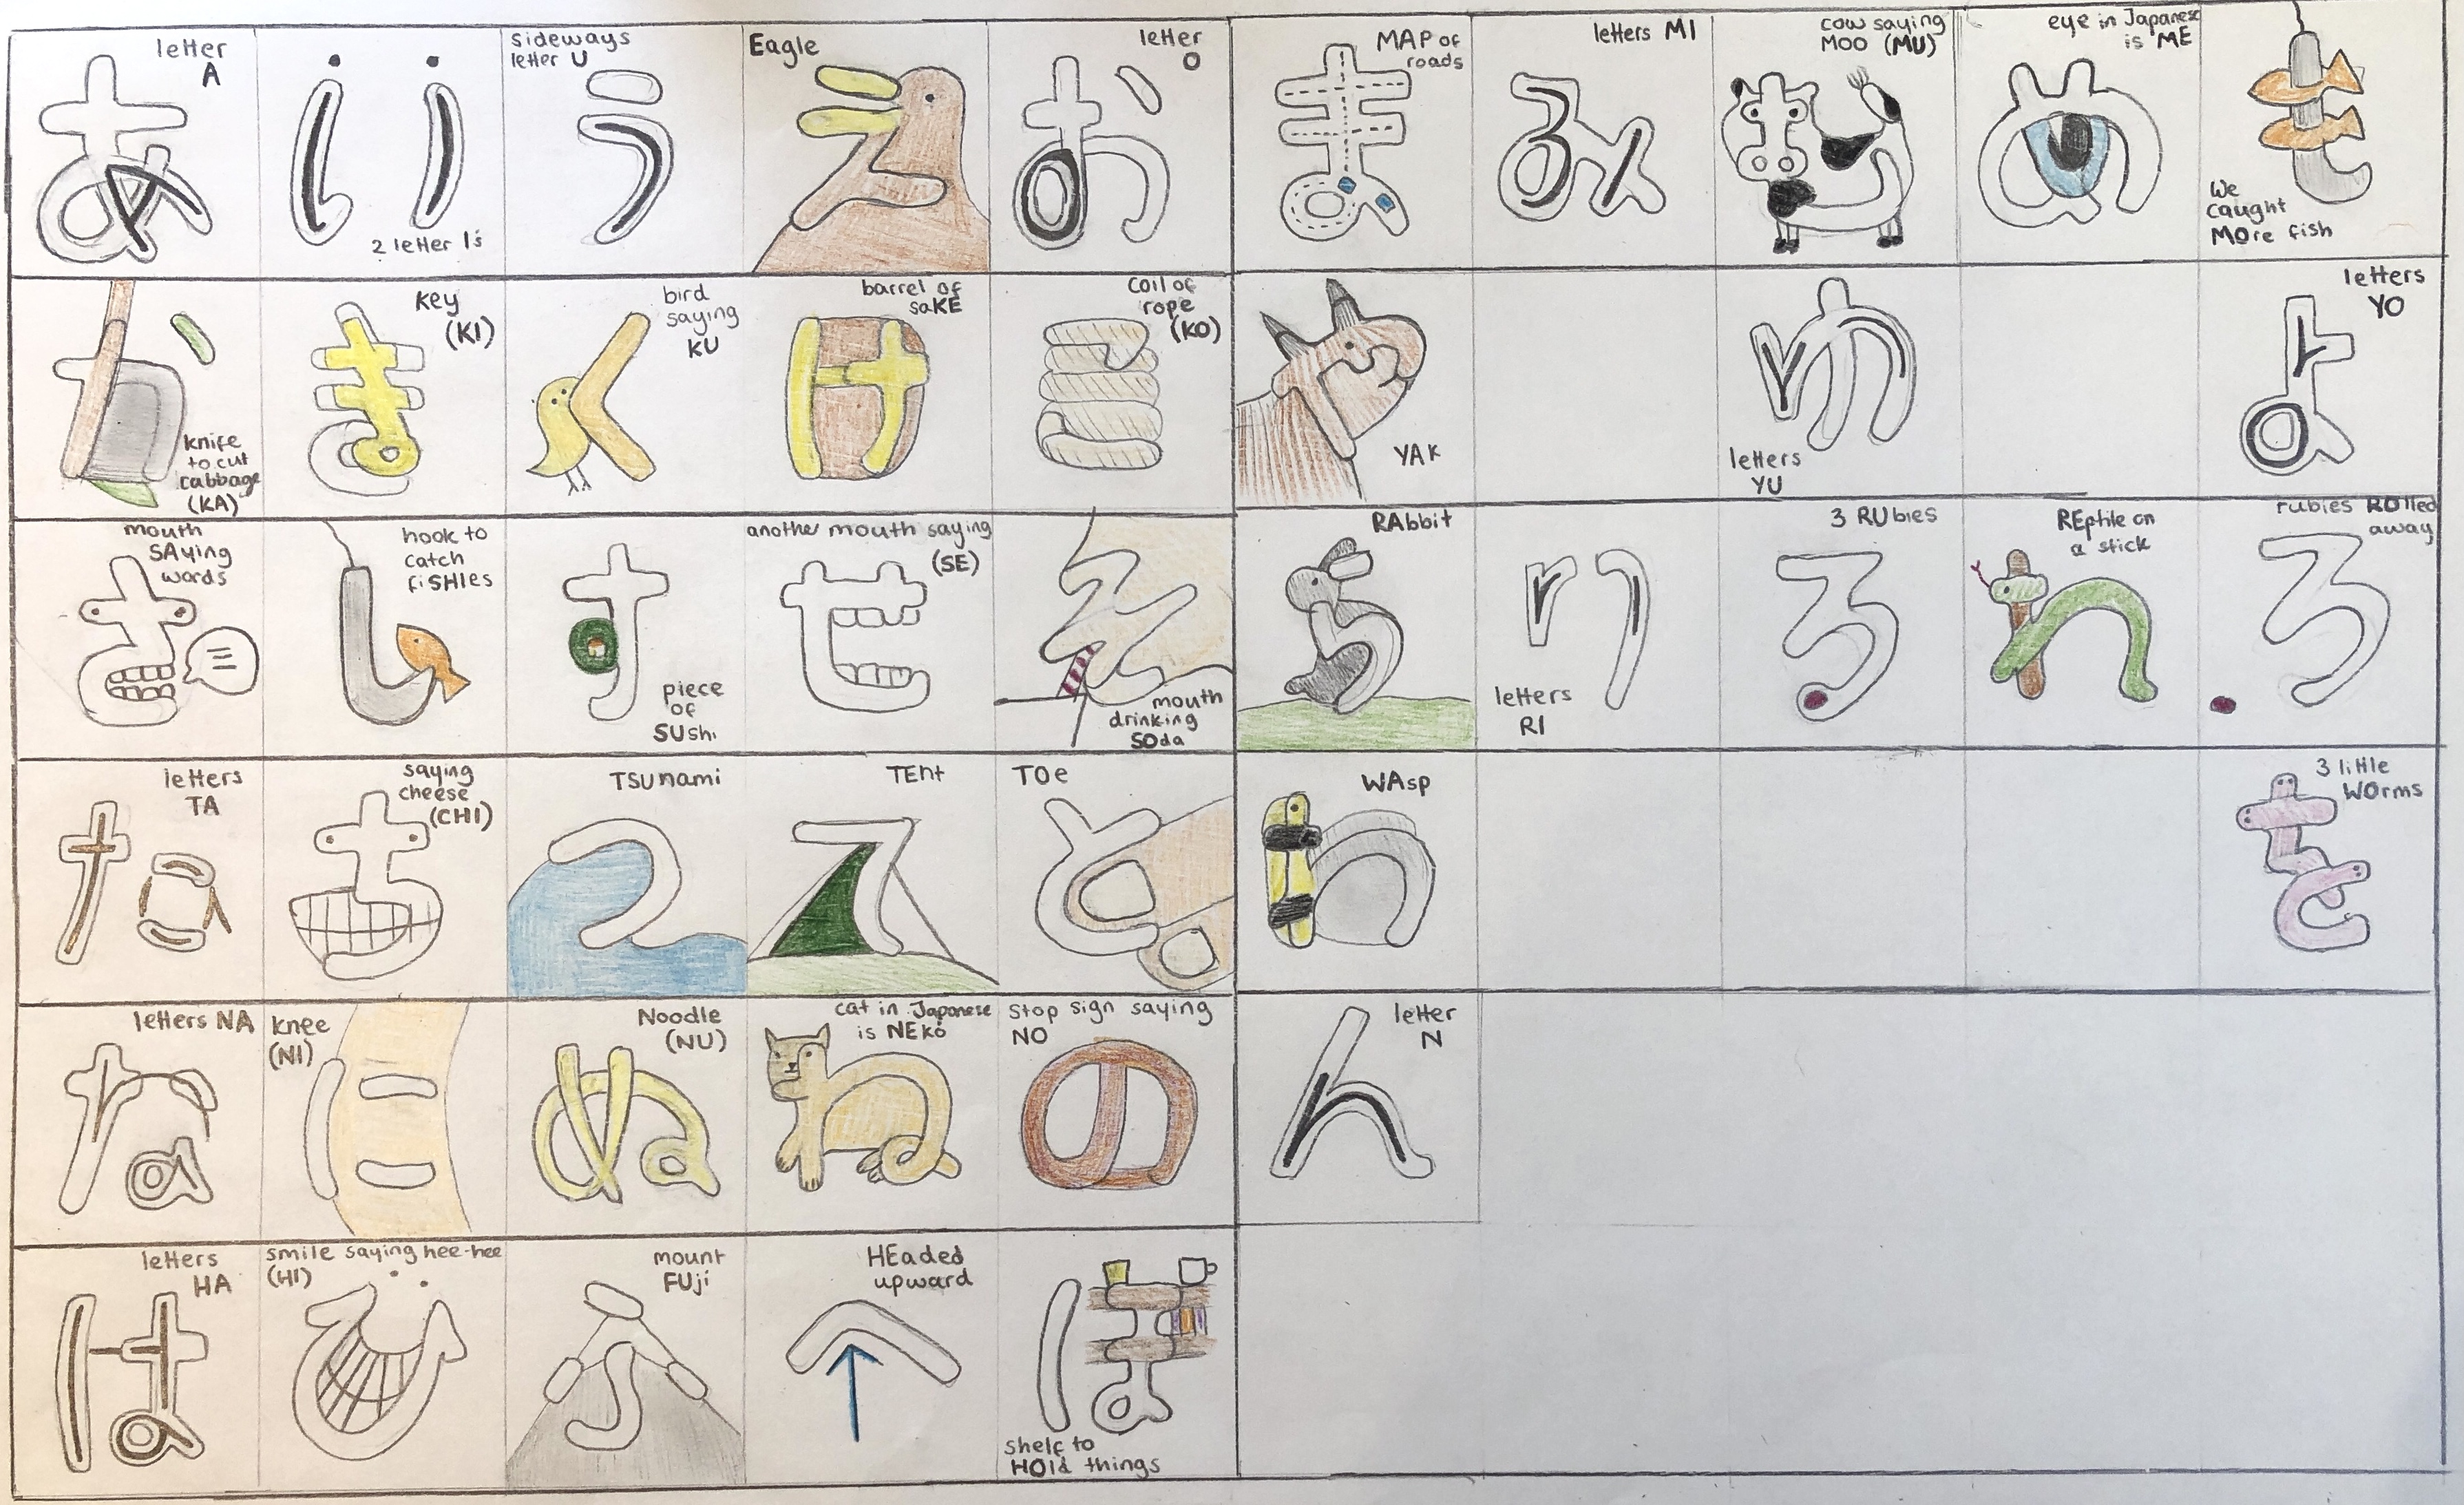 letter
A
あ
い
2 letter I's
sideways
letter U
う
Eagle
え
letter
O
お
か
knife
to cut
cabbage
(KA)
key
(KI)
き
bird
saying
KU
く
barrel of
saKE
け
coil of
rope
(KO)
こ
mouth
SAying
words
さ
hook to
catch
fiSHIes
し
す
piece
of
SUshi
another mouth saying
(SE)
せ
そ
mouth
drinking
SOda
letters
TA
た
saying
cheese
(CHI)
ち
TSUnami
つ
TEnt
て
TOe
と
letters NA
な
knee
(NI)
に
Noodle
(NU)
ぬ
cat in Japanese
is NEko
ね
Stop sign saying
NO
の
letters
HA
は
smile saying hee-hee
(HI)
ひ
mount
FUji
ふ
HEaded
upward
へ
ほ
shelf to
HOld things
MAP of
roads
ま
letters MI
み
cow saying
MOO (MU)
む
eye in Japanese
is ME
め
も
We
caught
MOre fish
や
YAK
ゆ
letters
YU
letters
YO
よ
RAbbit
ら
り
letters
RI
3 RUbies
る
REptile on
a stick
れ
rubies ROlled
away
ろ
WAsp
わ
3 little
WOrms
を
letter
N
ん